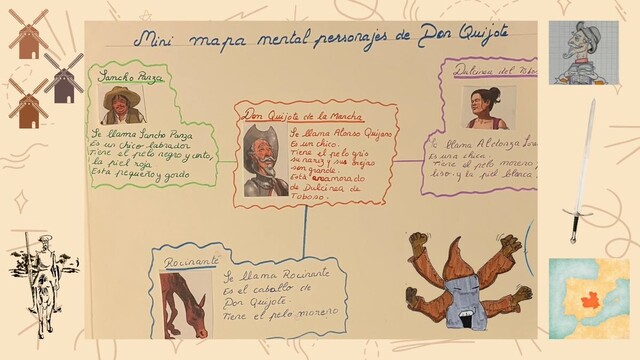 Mini mapa mental personajes de Don Quijote
Sancho Panza
Se llama Sancho Panza
Es un chico labrador
Tiene el pelo negro y corto,
la piel roja
Esta pequeño y gordo
Don Quijote de la Mancha
Se llama Alonso Quijano
Es un chico.
Tiene el pelo gris
su nariz y sus orejas
son grande.
Está enamorado
de Dulcinea de
Toboso.
Dulcinea del
llama Aldonza
Es una chica.
Tiene el pelo moreno
liso y la piel blanca.
Rocinante
Se llama Rocinante
Es el caballo de
Don Quijote.
Tiene el pelo moreno